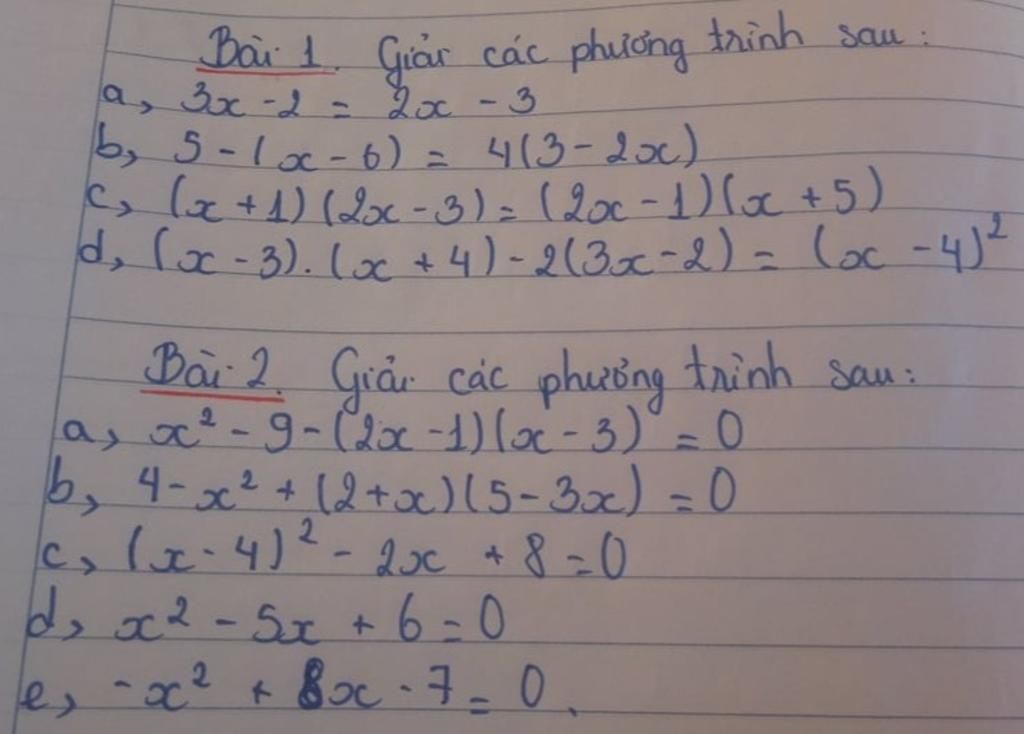 Bài 1. Giải các phương trình sau:
a, 3x - 2 = 2x - 3
b, 5 - (x - 6) = 4(3 - 2x)
c, (x + 1)(2x - 3) = (2x - 1)(x + 5)
d, (x - 3).(x + 4) - 2(3x - 2) = (x - 4)²
Bài 2. Giải các phương trình sau:
a, x² - 9 - (2x - 1)(x - 3) = 0
b, 4 - x² + (2 + x)(5 - 3x) = 0
c, (x - 4)² - 2x + 8 = 0
d, x² - 5x + 6 = 0
e, -x² + 8x - 7 = 0.